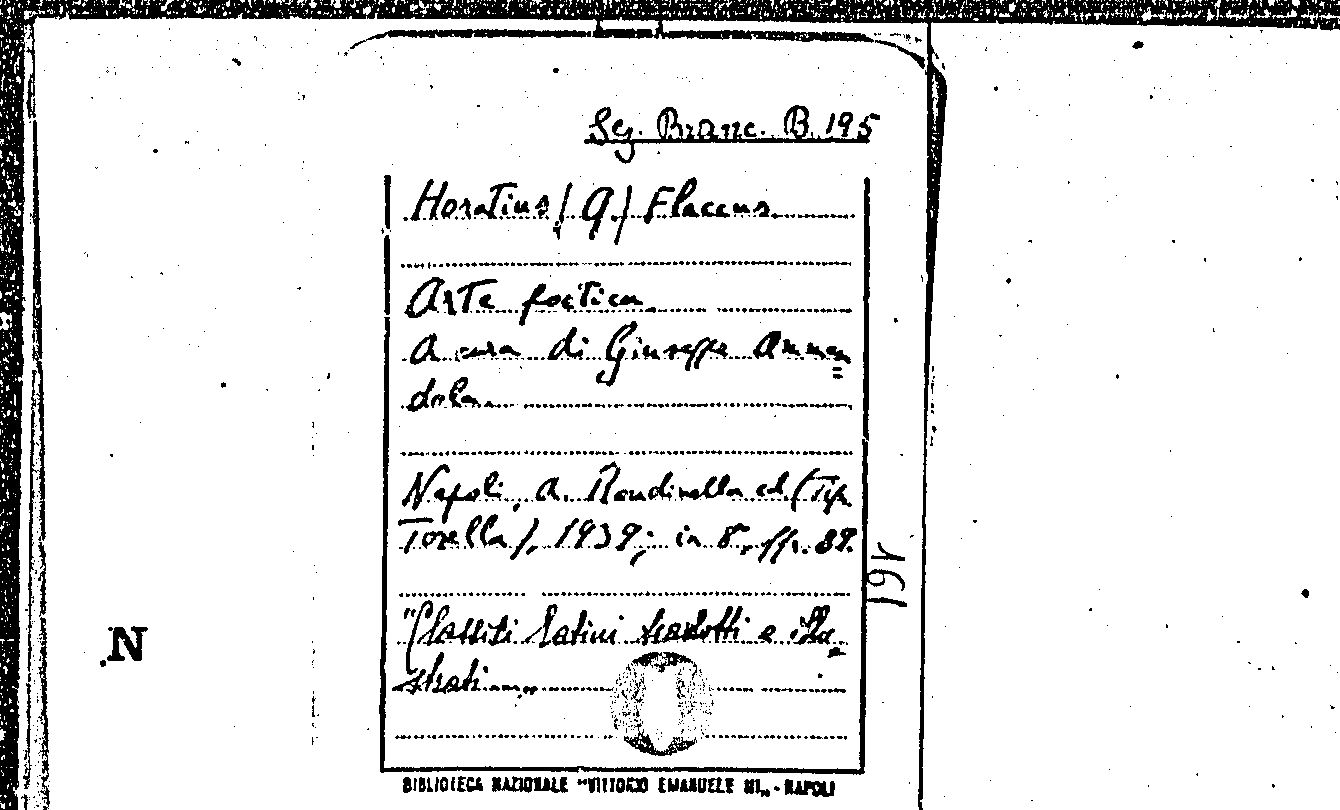 Seg. Branc. B. 195
Horatius (Q.) Flaccus.
Arte poetica.
A cura di Giuseppe Ammen=
dola.
Napoli, A. Rondinella ed. (Tip.
Torella), 1939; in 8°, pp. 89.
"Classici latini tradotti e illu=
strati".
191
N.
BIBLIOTECA NAZIONALE "VITTORIO EMANUELE III" - NAPOLI